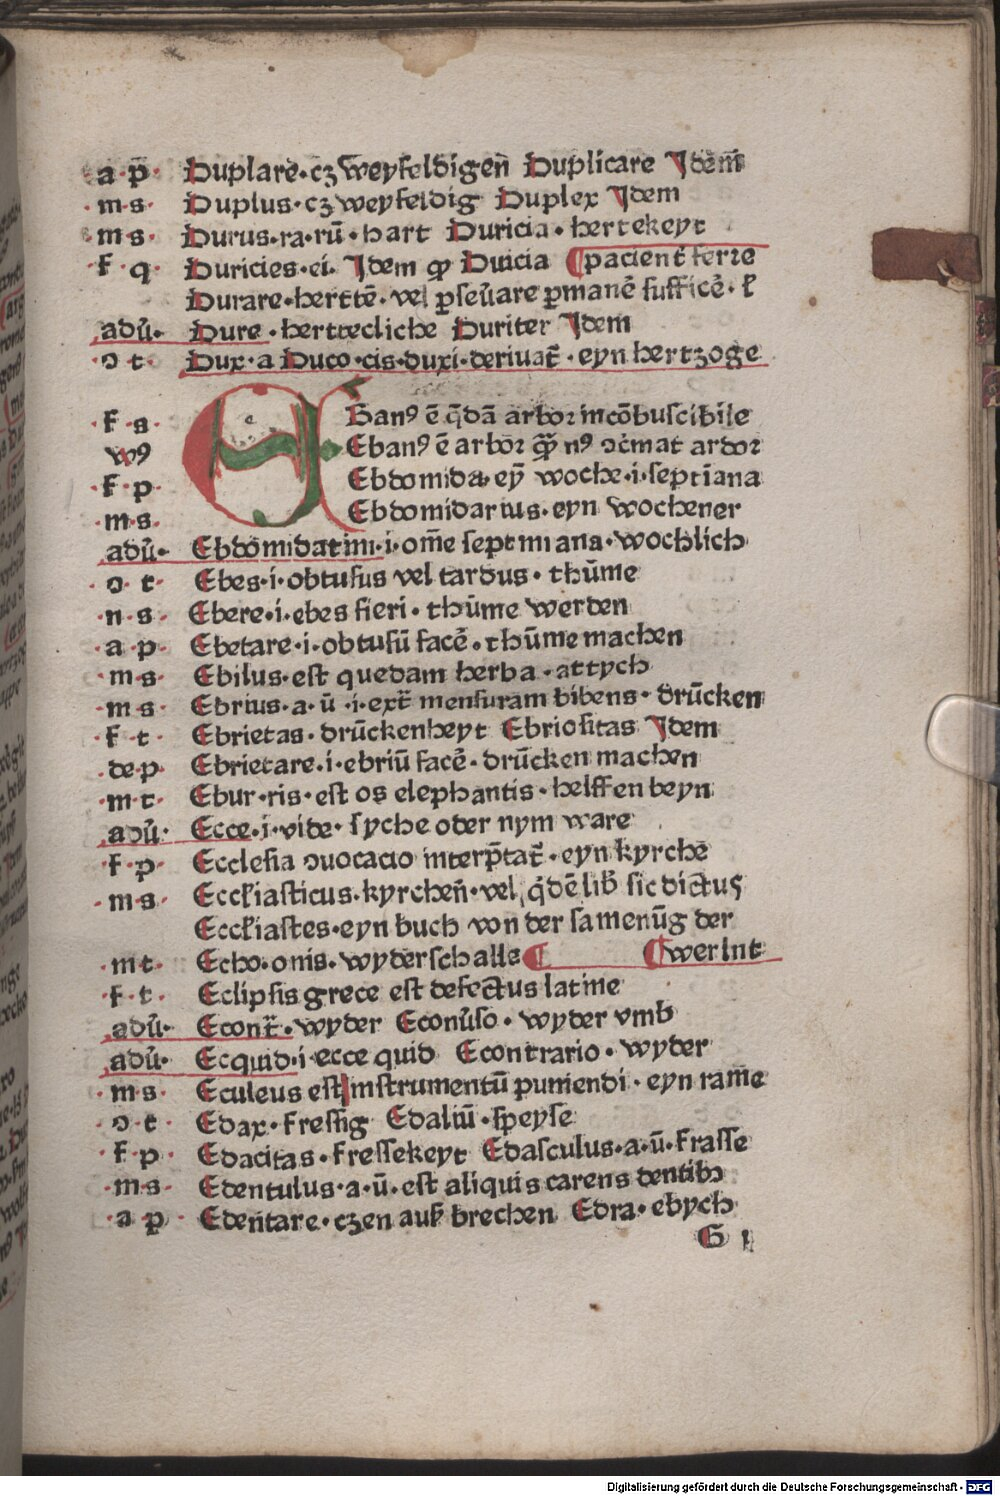 ·a·p̄· Duplare·cꝫ weyfeldigen̄ Duplicare Idem̄
·m·s· Duplus·cꝫ weyfeldig Duplex Idem
·m·s· Durus·ra·rū·hart Duricia·hertekeyt
·f·q· Duricies·ei·Idem qꝫ Duicia ¶pacient̄ ferre
Durare·herttē·vel ꝑseu̇are ꝑmanē sufficē·ł
adu̇· Dure·herttecliche Duriter Idem
·ↄ t· Dux·a Duco·cis·duxi·deriuat̄·eyn hertzoge
·f·s· EBanꝰ ē q̄dā arbor incōbuscibile
wꝰ Ebanꝰ ē arbor ꝙ̄ nꝰ ↄc̄mat ardor
·f·p· Ebdomida·eyn̄ woche·i·septīana
·m·s· Ebdomidarius·eyn wochener
adu̇· Ebdomidatim·i·om̄e septimana·wochlich
·ↄ t· Ebes·i·obtusus vel tardus·thūme
·n·s· Ebere·i·ebes fieri·thūme werden
·a·p· Ebetare·i·obtusū facē·thūme machen
·m·s· Ebilus·est quedam herba·attych
·m s· Ebrius·a·ū·i·ext̄ mensuram bibens·drūcken
·f·t· Ebrietas·drūckenheyt Ebriositas Idem
·de·p· Ebrietare·i·ebriū facē·drūcken machen
·m·t· Ebur·ris·est os elephantis·helffenbeyn
adu̇· Ecce·i·vide·syche oder nym ware
·f·p· Ecclesia ↄuocacio interp̄tat̄·eyn kyrchē
·m·s· Eccłiasticus·kyrchen̄·vel q̇dē lib̄ sic dictus
Eccłiastes·eyn buch von der samenūg der
·m t· Echo·onis·wyderschalle¶ ¶werlnt
·f·t· Eclipsis grece est defectus latine
adu̇· Econt̄·wyder Econu̇so·wyder vmb
adu̇· Ecquid·i·ecce quid Econtrario·wyder
·m s· Eculeus est instrumentū puniendi·eyn ram̄e
·ↄ t· Edax·fressig Edaliū·speyse
·f·p· Edacitas·fressekeyt Edasculus·a·ū·frasse
·m s· Edentulus·a·ū·est aliquis carens dentibꝫ
·a p· Edentare·czen auß brechen Edra·ebych
G 1
Digitalisierung gefördert durch die Deutsche Forschungsgemeinschaft - DFG